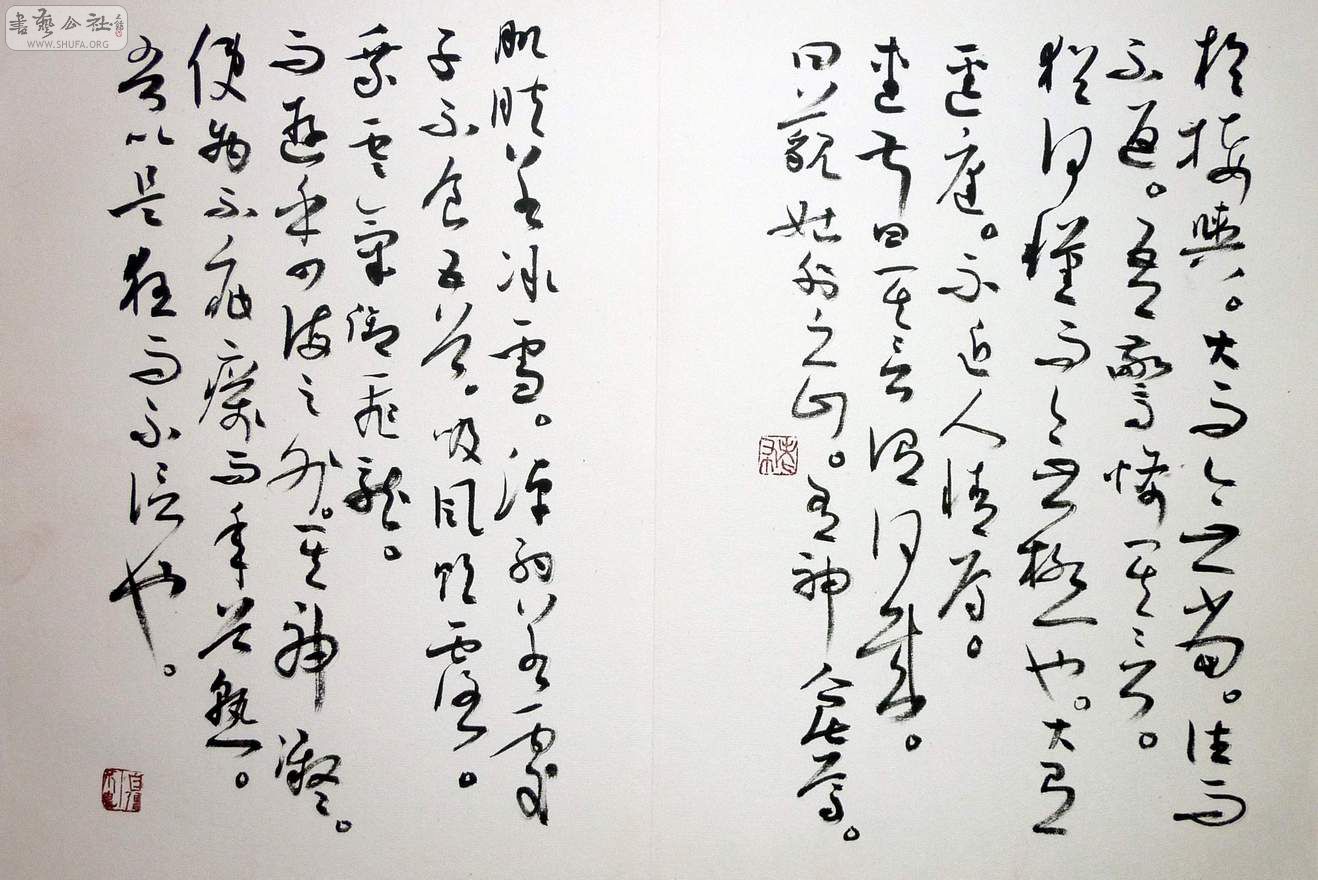 於接輿。大而無當。往而
不返。吾驚怖其言。
猶河漢而無極也。大有
逕庭。不近人情焉。
連叔曰其言謂何哉。
曰藐姑射之山。有神人居焉。
肌膚若冰雪。淖約若處
子不食五穀。吸風飲露。
乘雲氣御飛龍。
而遊乎四海之外。其神凝。
使物不疵癘而年穀熟。
吾以是狂而不信也。
書藝公社
WWW.SHUFA.ORG